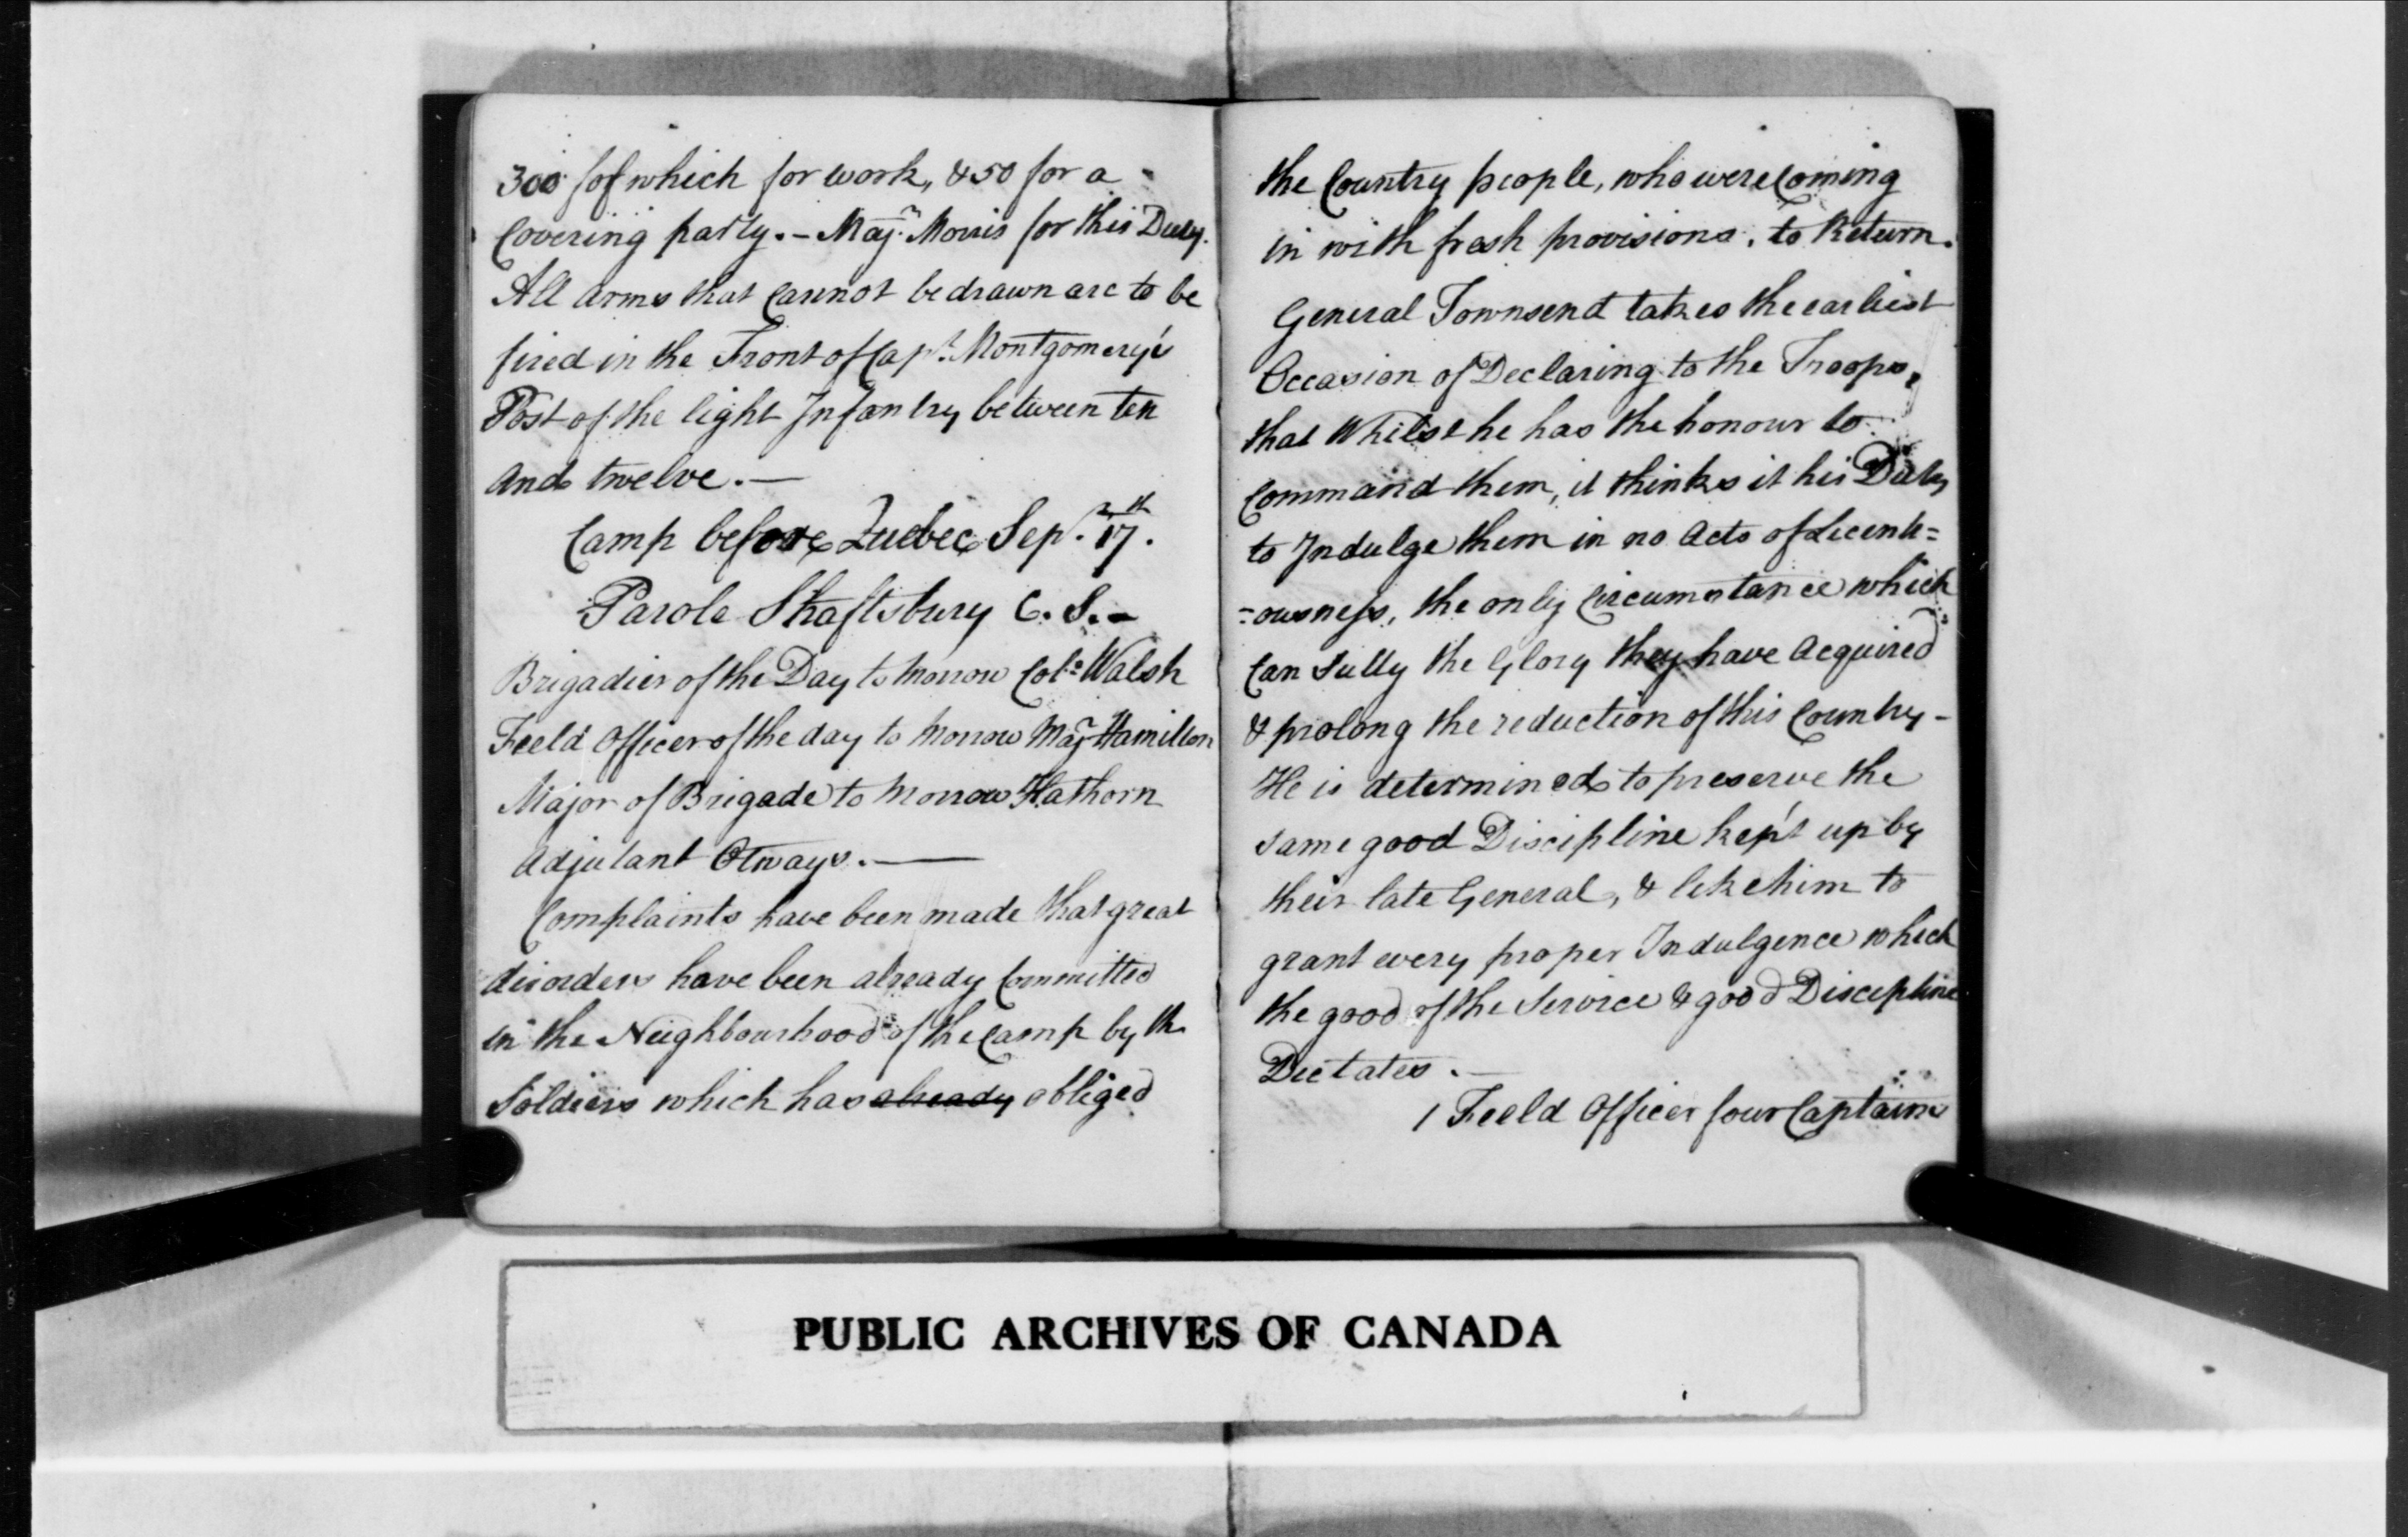 300 of which for work, & 50 for a
Covering party. - Majr. Morris for this Duty.
All Arms that Cannot be drawn are to be
fired in the Front of Capt. Montgomery's
Post of the light Infantry between ten
And twelve. —
Camp before Quebec Sepr. 17th.
Parole Shaftsbury C. S. -
Brigadier of the Day to Morrow Colo. Walsh
Feeld Officer of the day to Morrow Majr Hamilton
Major of Brigade to Morrow Hathorn
Adjutant Otways. —
Complaints have been made that great
disorders have been already Committed
in the Neighbourhood of the Camp by the
Soldiers which has already obliged
the Country people, who were Coming
in with fresh provisions, to Return.
General Townsend takes the earliest
Occasion of Declaring to the Troops,
that Whilst he has the honour to
Command them, it thinks it his Duty
to Indulge them in no Acts of Licenti=
=ousness, the only Circumstance which
Can Sully the Glory they have Acquired
& prolong the reduction of this Country -
He is determined to preserve the
same good Discipline kep't up by
their late General, & like him to
grant every proper Indulgence which
the good of the Service & good Discipline
Dictates. —
1 Feeld Officer four Captains
PUBLIC ARCHIVES OF CANADA